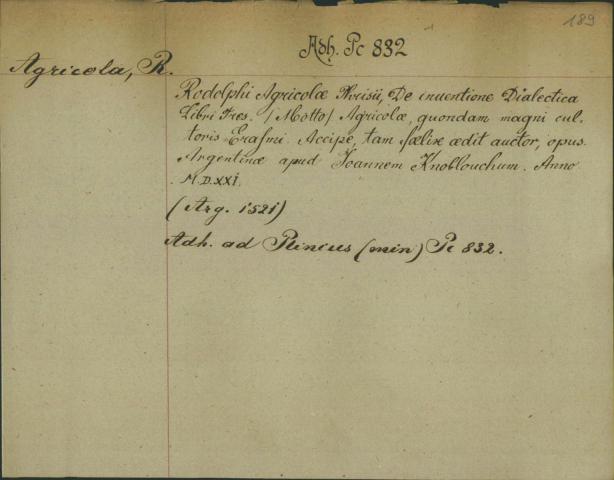 189
Adh. Pc 832
Agricola, R.
Rodolphi Agricolæ Phrisii, De inuentione Dialectica
Libri Tres. /Motto/ Agricolæ, quondam magni cul-
toris Erasmi. Accipe, tam fœlix ædit auctor, opus.
Argentinæ apud Ioannem Knoblouchum. Anno
M.D.XXI.
(Arg. 1521)
Adh. ad Plinius (min) Pc 832.